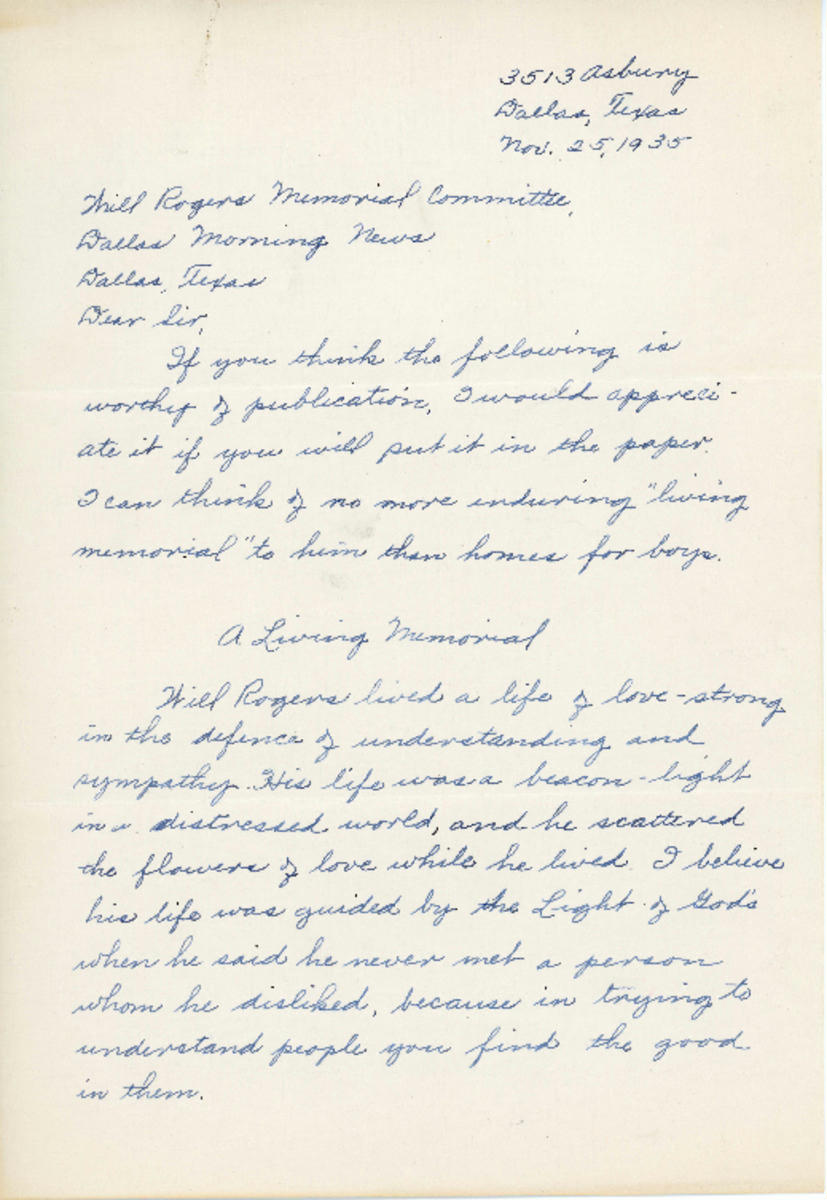 3513 Asbury
Dallas, Texas
Nov. 25, 1935
Will Rogers Memorial Committee,
Dallas Morning News
Dallas, Texas
Dear Sir,
If you think the following is
worthy of publication, I would appreci-
ate it if you will put it in the paper.
I can think of no more enduring "living
memorial" to him than homes for boys.
A Living Memorial
Will Rogers lived a life of love - strong
in the defence of understanding and
sympathy. His life was a beacon-light
in a distressed world, and he scattered
the flowers of love while he lived. I believe
his life was guided by the Light of God's
when he said he never met a person
whom he disliked, because in trying to
understand people you find the good
in them.